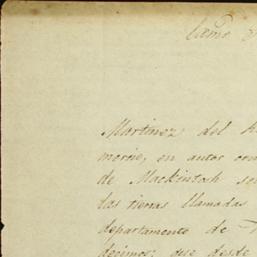 Martinez del
en autos con
de Mackintosh so
las tierras llamadas
departamento de
decimos: que desde